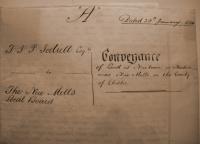 "A"
Dated 29th January
J. J. P. Jodrell Esqre
to
The New Mills
Local Board
Conveyance
of Land at Newtown in
near New Mills in the County
of Chester